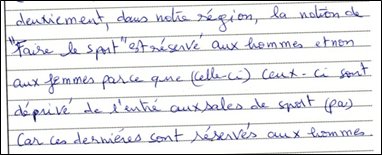 deuxiement, dans notre région, la notion de
"Faire le sport" est réservé aux hommes et non
aux femmes parce que (celle-ci) ceux-ci sont
déprivé de l'entré aux sales de sport (pa)
Car ces dernières sont réservés aux hommes